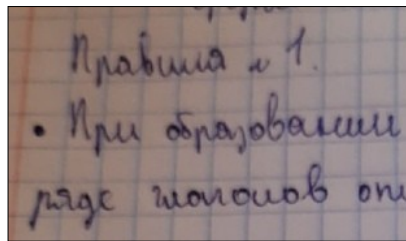 Правила № 1.
• При образовании
ряде глаголов